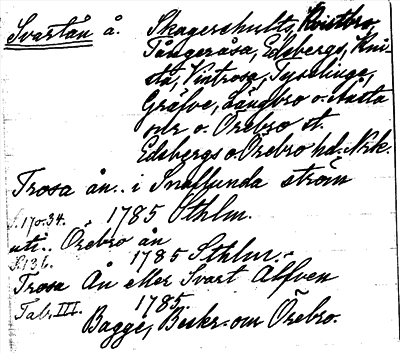 Svartån å. Skagershults, Kvistbro,
Tångeråsa, Edsbergs, Kni-
sta, Vintrosa, Tysslinge,
Gräfve, Längbro o. Almby
snr o. Örebro st.
Edsbergs o. Örebro hd. Nrk.
Trosa ån.. i Snaflunda ström
S. 170. 34. 1785 Sthlm.
uti.. Örebro ån
S. 136. 1785 Sthlm.
Trosa Ån eller Svart Alfven
Tab. III. 1785.
Bagge, Beskr. om Örebro.